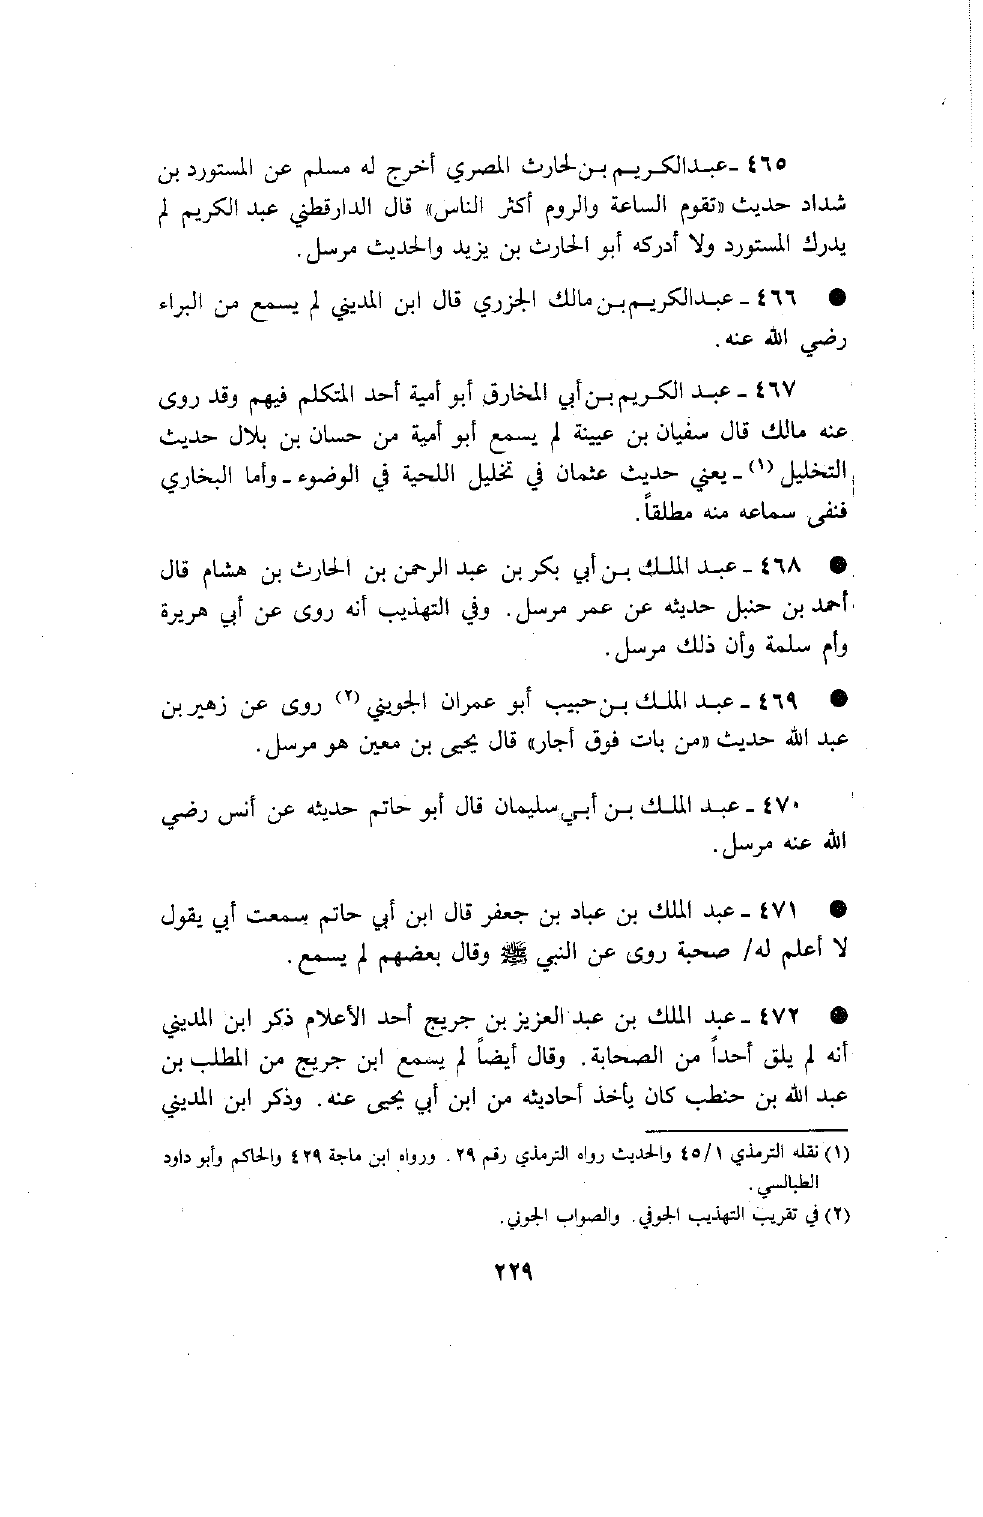 ٤٦٥ ـ عبدالكريم بن لحارث المصري أخرج له مسلم عن المستورد بن
شداد حديث «تقوم الساعة والروم أكثر الناس» قال الدارقطني عبد الكريم لم
يدرك المستورد ولا أدركه أبو الحارث بن يزيد والحديث مرسل.
● ٤٦٦ ـ عبدالكريم بن مالك الجزري قال ابن المديني لم يسمع من البراء
رضي الله عنه.
٤٦٧ ـ عبد الكريم بن أبي المخارق أبو أمية أحد المتكلم فيهم وقد روى
عنه مالك قال سفيان بن عيينة لم يسمع أبو أمية من حسان بن بلال حديث
التخليل (١) ـ يعني حديث عثمان في تخليل اللحية في الوضوء ـ وأما البخاري
فنفى سماعه منه مطلقاً.
● ٤٦٨ ـ عبد الملك بن أبي بكر بن عبد الرحمن بن الحارث بن هشام قال
أحمد بن حنبل حديثه عن عمر مرسل. وفي التهذيب أنه روى عن أبي هريرة
وأم سلمة وأن ذلك مرسل.
● ٤٦٩ ـ عبد الملك بن حبيب أبو عمران الجويني (٢) روى عن زهير بن
عبد الله حديث «من بات فوق أجار» قال يحيى بن معين هو مرسل.
٤٧٠ ـ عبد الملك بن أبي سليمان قال أبو حاتم حديثه عن أنس رضي
الله عنه مرسل.
● ٤٧١ ـ عبد الملك بن عباد بن جعفر قال ابن أبي حاتم سمعت أبي يقول
لا أعلم له/ صحبة روى عن النبي ﷺ وقال بعضهم لم يسمع.
● ٤٧٢ ـ عبد الملك بن عبد العزيز بن جريج أحد الأعلام ذكر ابن المديني
أنه لم يلق أحداً من الصحابة. وقال أيضاً لم يسمع ابن جريج من المطلب بن
عبد الله بن حنطب كان يأخذ أحاديثه من ابن أبي يحيى عنه. وذكر ابن المديني
(١) نقله الترمذي ٤٥/١ والحديث رواه الترمذي رقم ٢٩. ورواه ابن ماجة ٤٢٩ والحاكم وأبو داود
الطيالسي.
(٢) في تقريب التهذيب الجوفي. والصواب الجوني.
٢٢٩